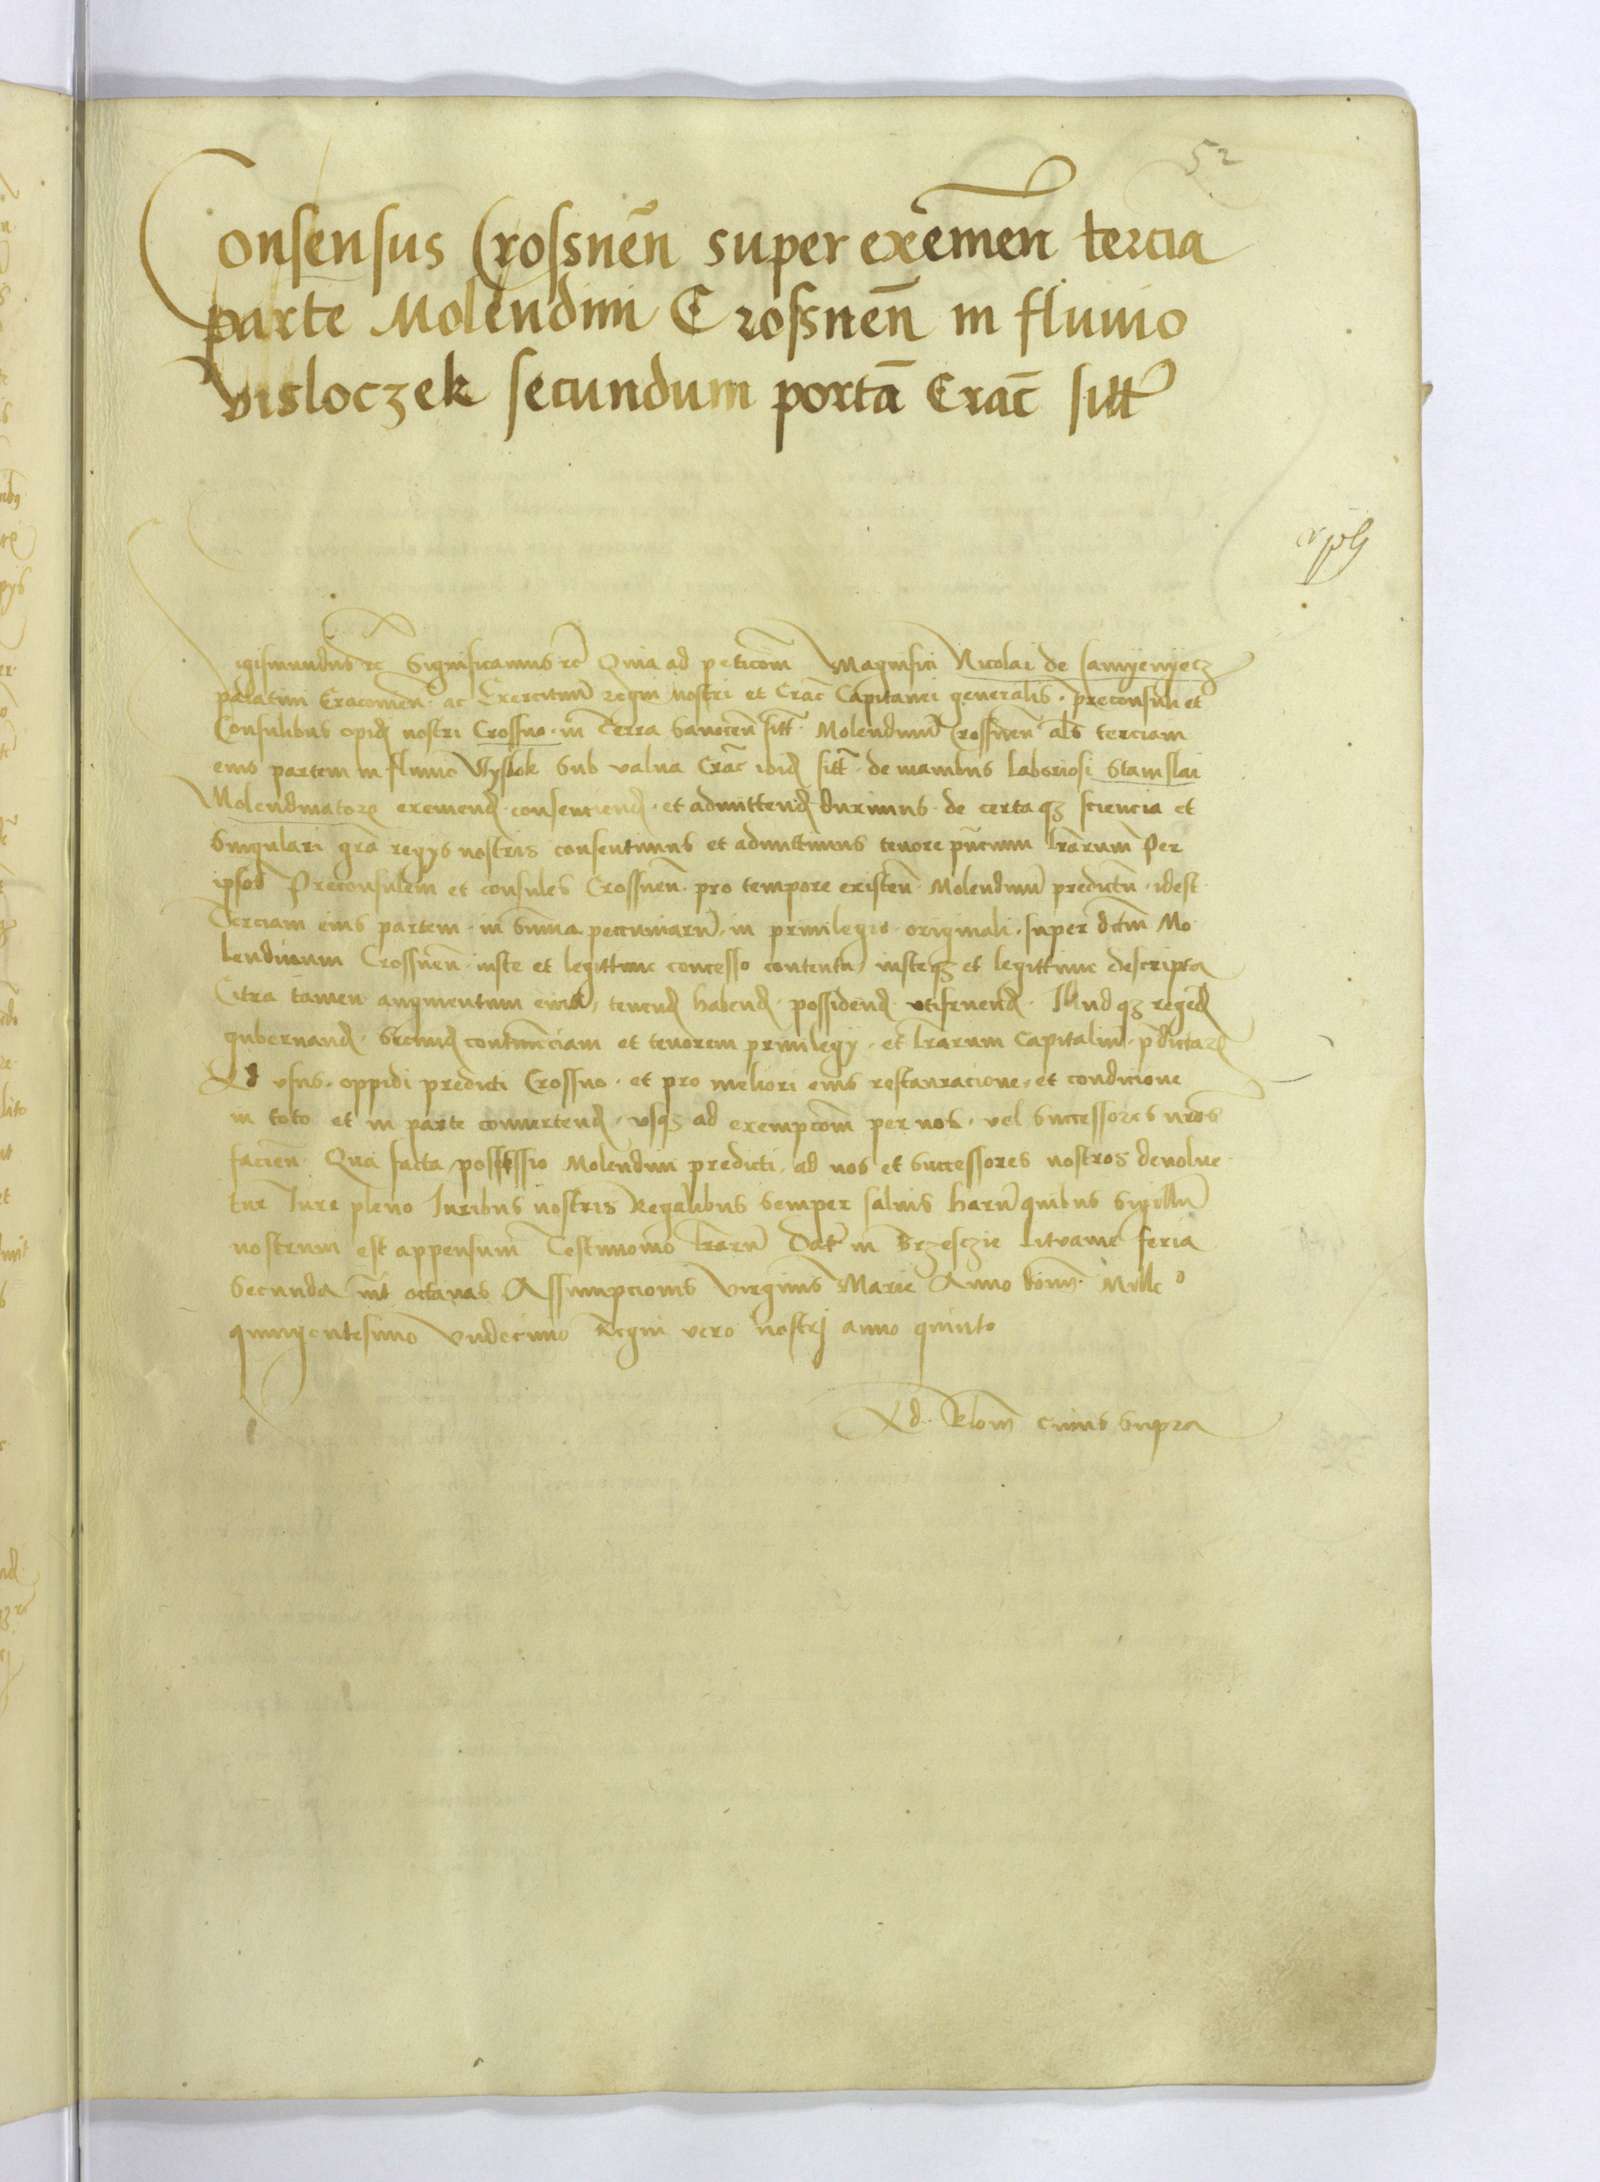 52
Consensus Crossnen̄ super exemen̄ tercia
parte Molendini Crossnen̄ in fluvio
Visloczek secundum portā Crac̄ sitt
Sigismundus rc Significamus rc Quia ad peticom̄ Magnifici Nicolai de Camyenyecz
palatini Cracovien̄ ac Exercituū regni nostri et Crac̄ Capitanei generalis preconsuli et
Consulibus opid nostri Crossno in Terra Sanocen̄ sitt Molendinū Crossnen̄ als terciam
eius partem in fluvio Vyslok sub valva Crac̄ ibid sitt de manibus laboriosi Stanislai
Molendinatoris exemend consenciend et admittend duximus de certa qz sciencia et
singulari gra regys nostris consentimus et admittimus tenore pn̄cium lrarum Per
ipsos Preconsulem et consules Crossnen̄ pro tempore existen̄ Molendinū predictū idest
Terciam eius partem in Summa pecuniarū in privilegio originali super dctm̄ Mo
lendinum Crossnen̄ iuste et legittime concesso contenta iusteqz et legittime descripta
Citra tamen augmentum eiusd tenend habend possidend utifruend Illudqz regend
gubernand Secund continenciam et tenorem privilegy et lrarum Capitaliū pdictarū
Ad usus oppidi predicti Crossno et pro meliori eius restauracione et condicione
in toto et in parte convertend usqz ad exempcom̄ per nos vel successores nros
facien̄ Qua facta possessio Molendini predicti ad nos et successores nostros devolve
tur Iure pleno Iuribus nostris Regalibus semper salvis harū quibus Sigillū
nostrum est appensum Testimonio lrarū Dat in Brzesczie Litvanie feria
Secunda inf octavas Assumpcionis Virginis Marie Anno domi Mille o
quingentesimo Undecimo Regni vero nostrj anno quinto
Ad Rlom̄ cuius supra